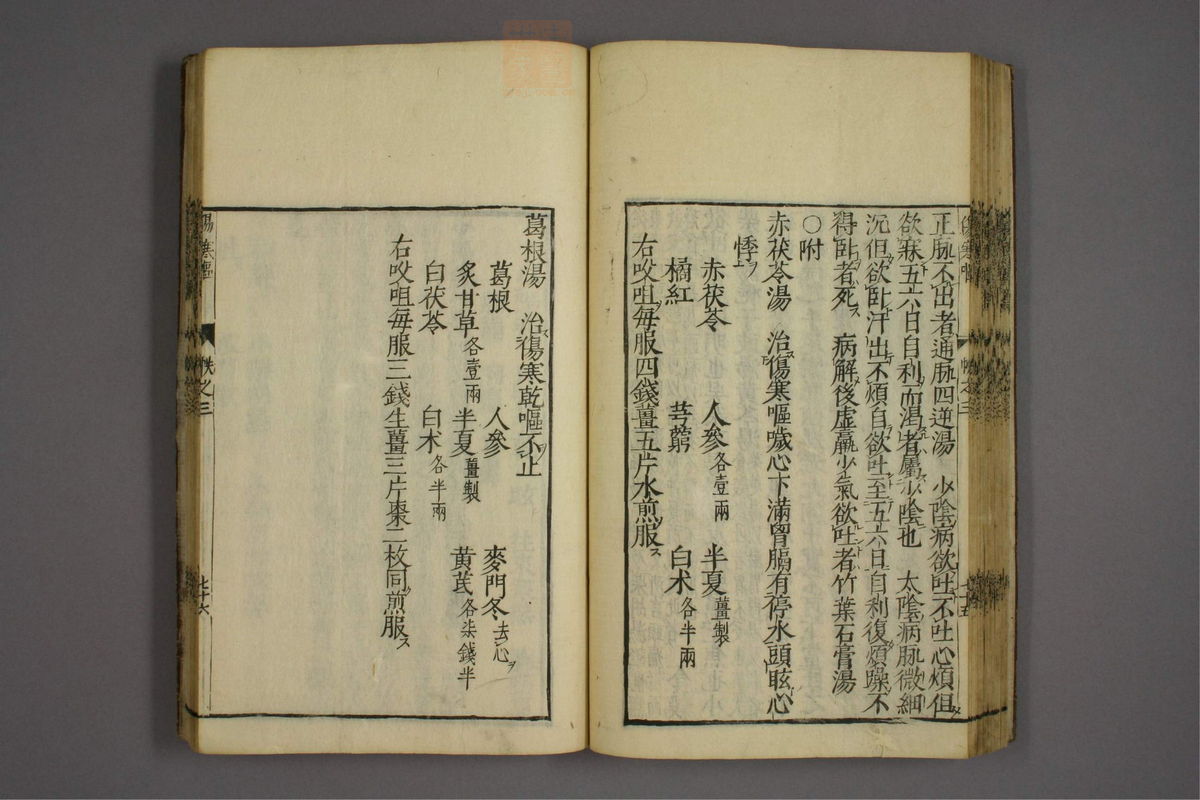 正脉不出者通脉四逆湯　少陰病欲吐不吐心煩但
欲寐五六日自利而渴者屬少陰也　太陰病脉微細
沉但欲臥汗出不煩自欲吐至五六日自利復煩躁不
得臥者死ス　病解後虛羸少氣欲吐者竹葉石膏湯
○附
赤茯苓湯　治傷寒嘔噦心下滿胷膈有停水頭眩心
悸ヲ上
赤茯苓　人參各壹兩　半夏薑製
橘紅　芎藭　白术各半兩
右㕮咀每服四錢薑五片水煎服ス
七十五
葛根湯　治傷寒乾嘔不止
葛根　人參　麥門冬去心ヲ
炙甘草各壹兩　半夏薑製　黄芪各柒錢半
白茯苓　白术各半兩
右㕮咀每服三錢生薑三片棗二枚同煎服ス
帙之三
七十六